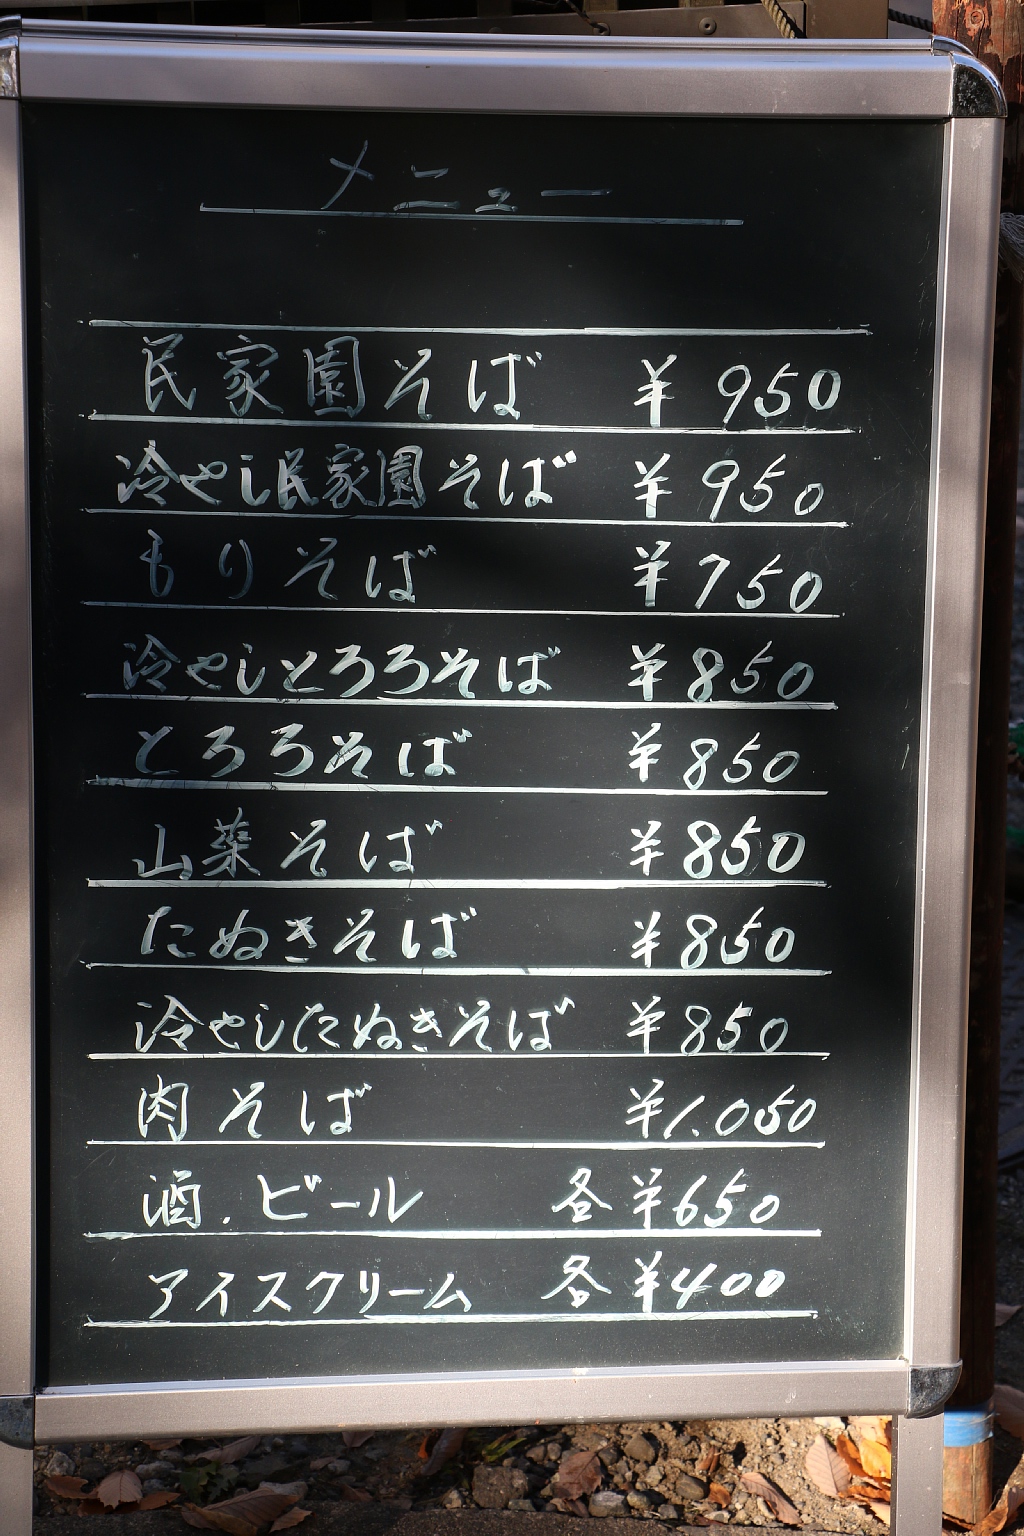 メニュー
民家園そば ¥950
冷やし民家園そば ¥950
もりそば ¥750
冷やしとろろそば ¥850
とろろそば ¥850
山菜そば ¥850
たぬきそば ¥850
冷やしたぬきそば ¥850
肉そば ¥1.050
酒.ビール 各¥650
アイスクリーム 各¥400